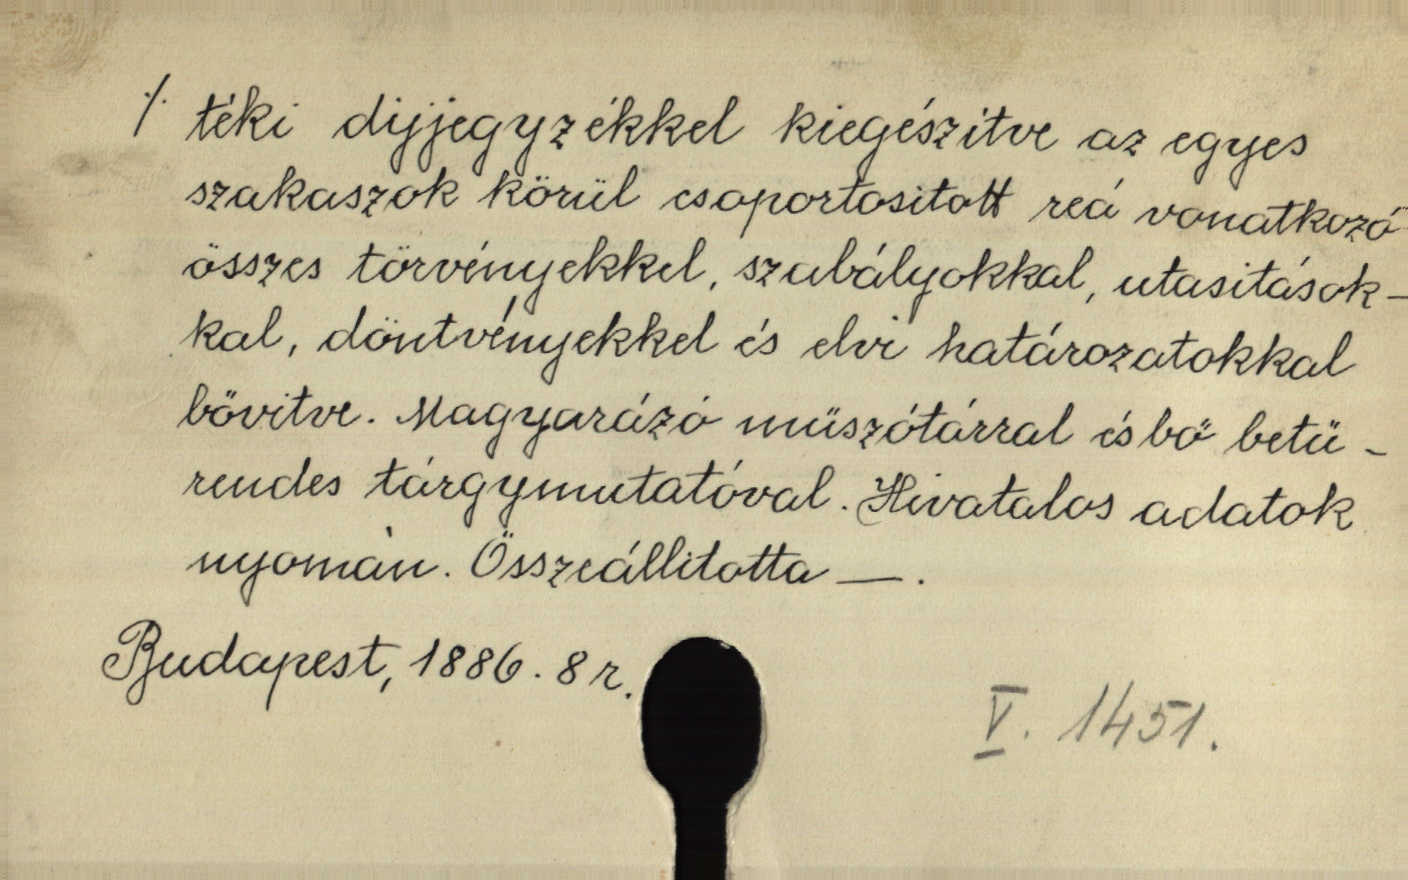 ./. téki dijjegyzékkel kiegészitve az egyes
szakaszok körül csoportositott reá vonatkozó
összes törvényekkel, szabályokkal, utasitások-
kal, döntvényekkel és elvi határozatokkal
bővitve. Magyarázó műszótárral és bő betü-
rendes tárgymutatóval. Hivatalos adatok
nyomán. Összeállitotta —.
Budapest, 1886. 8 r.
V. 1451.